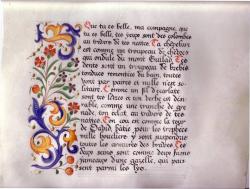 Que tu es belle, ma compagne, que
tu es belle, tes yeux sont des colombes
au travers de tes nattes. Ta chevelure
est comme un troupeau de chèvres
qui ondule du mont Guilad. Tes
dents sont un troupeau de brebis
tondues remontant du bain, toutes
vont par paires et nulle n'est so
litaire. Comme un fil d'écarlate
sont tes lèvres et ton verbe est dési
rable, comme une tranche de gre
nade, ton éclat au travers de tes
nattes. Ton cou est comme la tour
de David bâtie pour les trophées
mille boucliers y sont suspendus
toutes les armures des braves. Tes
deux seins sont comme deux faons
jumeaux d'une gazelle, qui pais
sent parmi les lys.